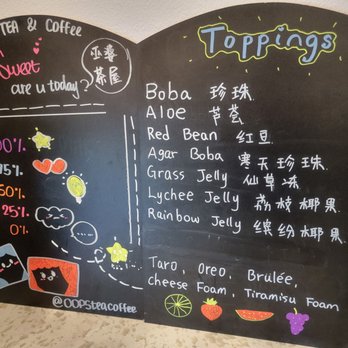 TEA & Coffee
巫婆
茶屋
Sweet
are u today?
0%
75%
50%
25%
0%
@OOPSteacoffee
Toppings
Boba 珍珠
Aloe 芦荟
Red Bean 红豆
Agar Boba 寒天珍珠
Grass Jelly 仙草冻
Lychee Jelly 荔枝椰果
Rainbow Jelly 缤纷椰果
Taro, Oreo, Brulée,
cheese Foam, Tiramisu Foam